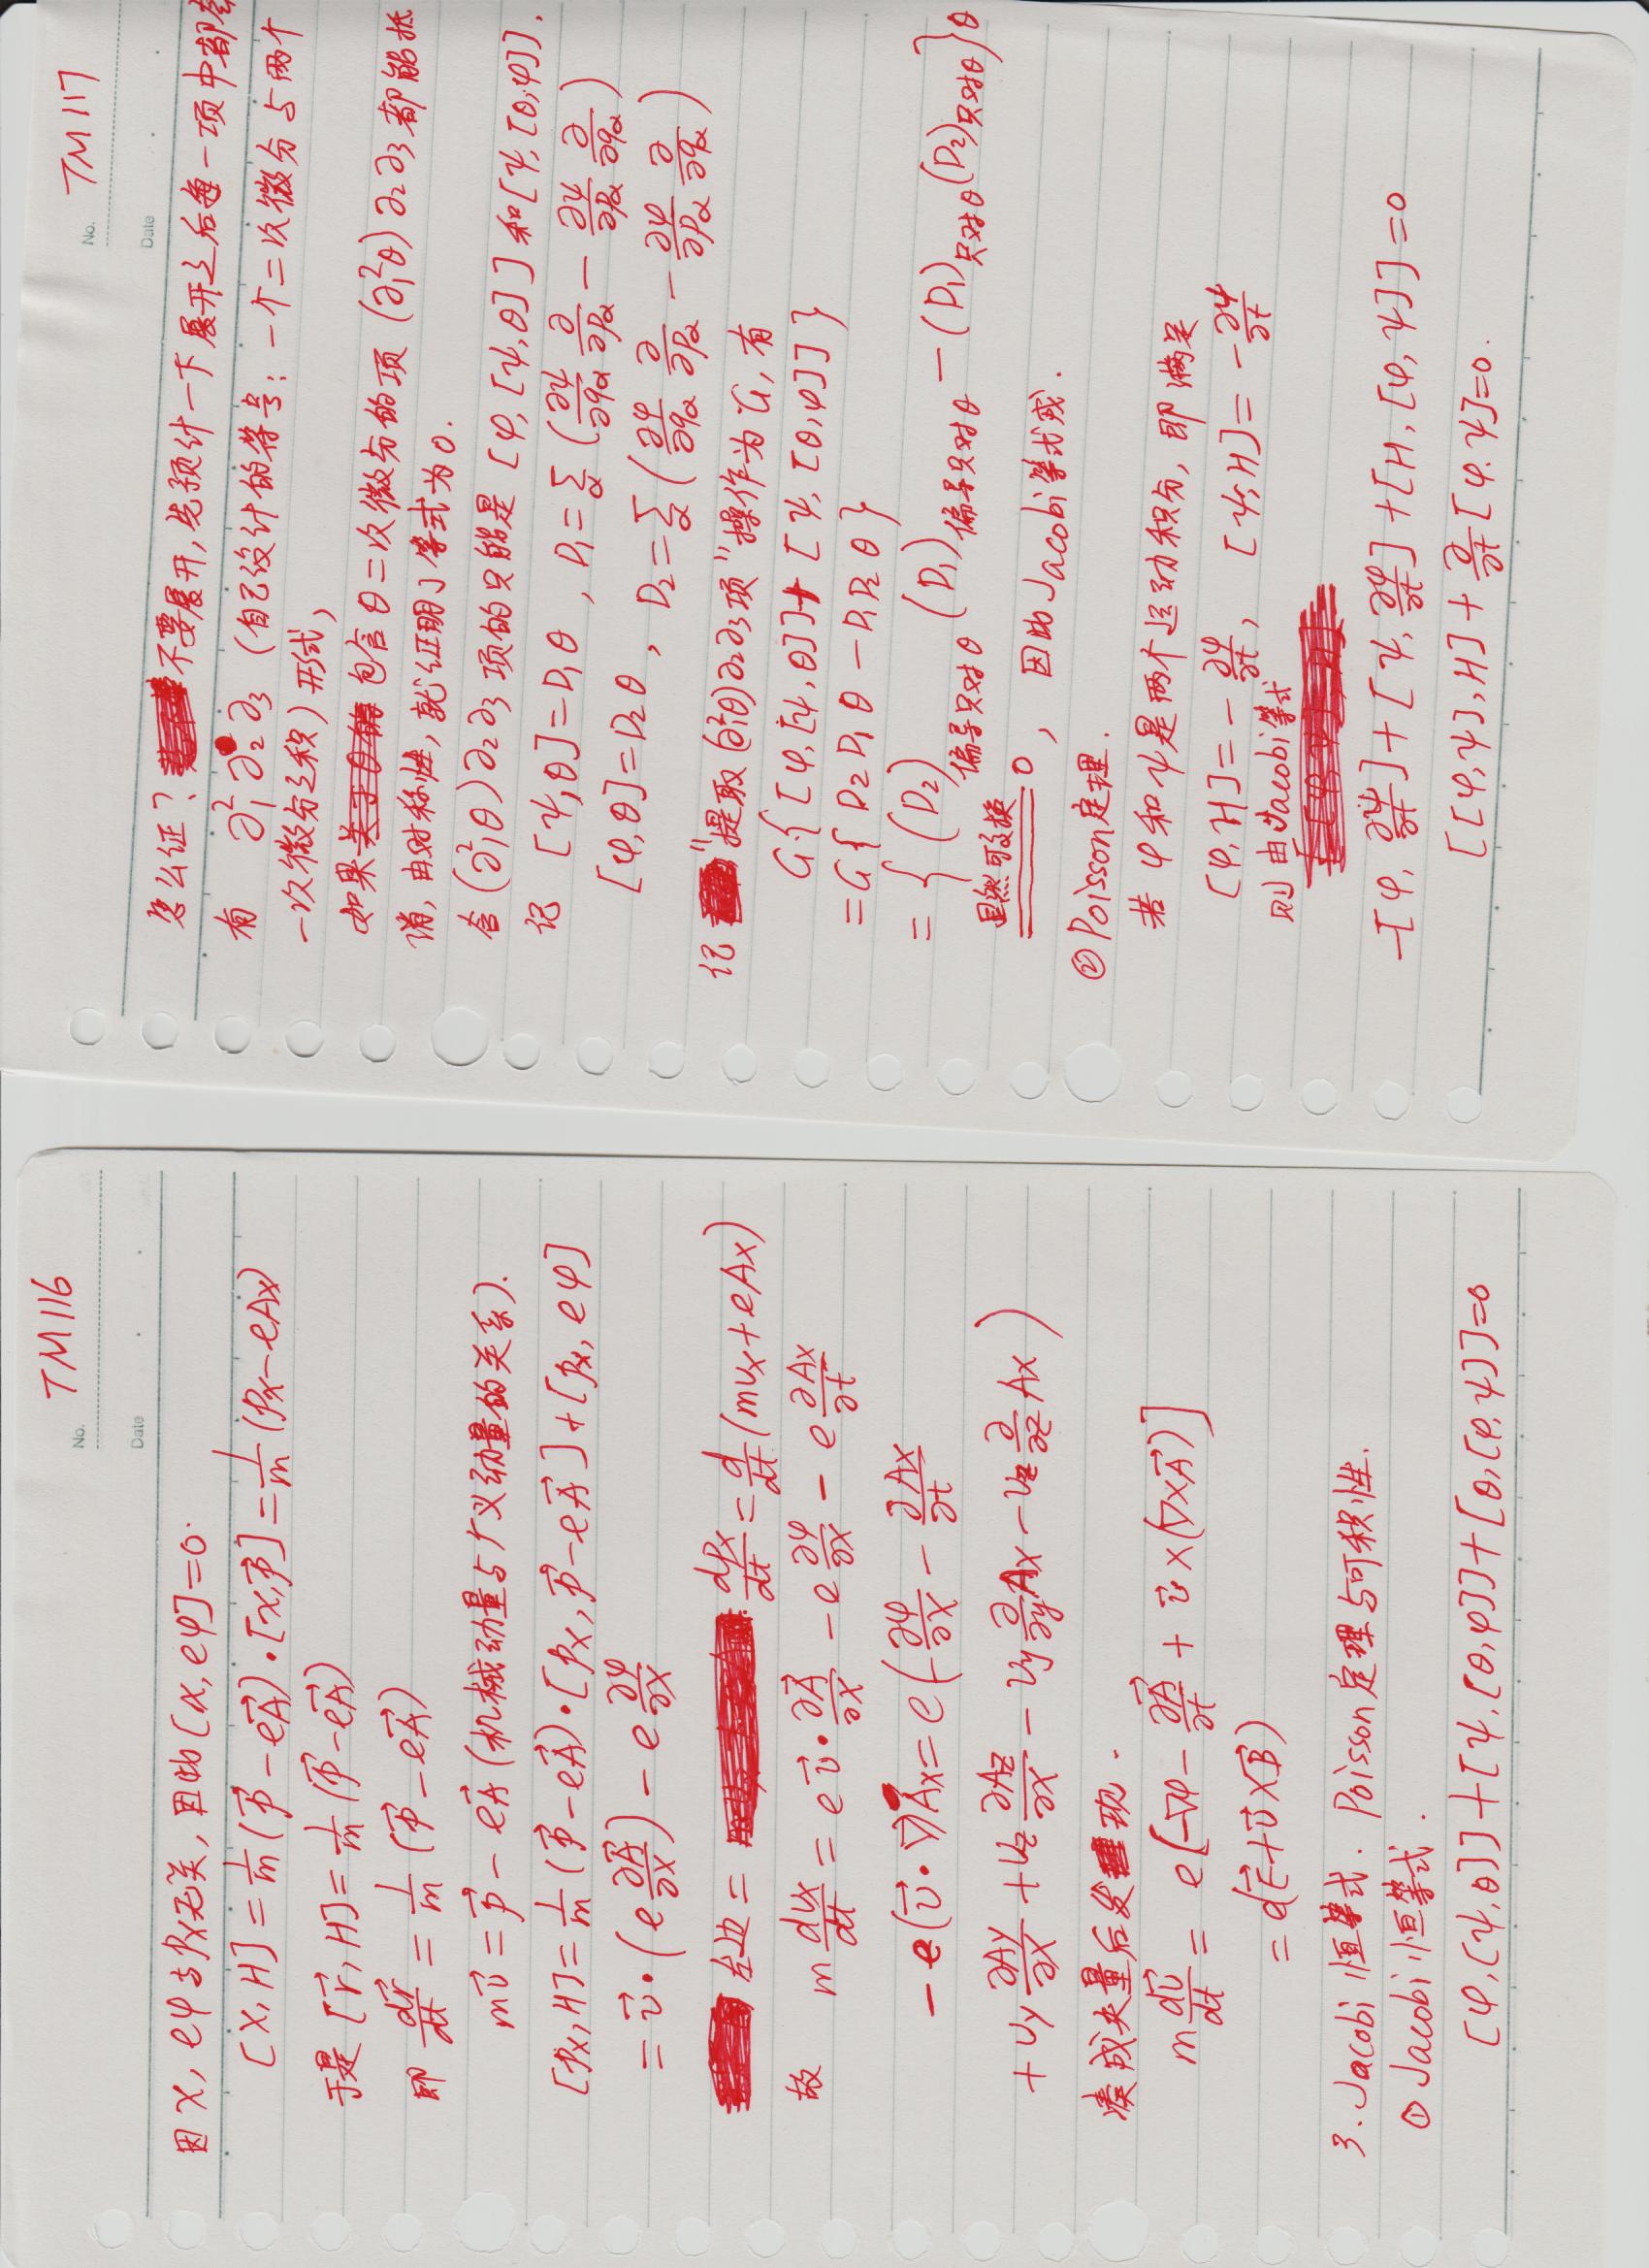 No. TM116
Date
因x, eφ与px无关, 因此[x, eφ]=0.
[x, H] = 1/m (p⃗ - eA⃗)·[x, p⃗] = 1/m (px - eAx)
于是 [r⃗, H] = 1/m (p⃗ - eA⃗)
即 dr⃗/dt = 1/m (p⃗ - eA⃗)
mv⃗ = p⃗ - eA⃗ (机械动量与广义动量的关系).
[px, H] = 1/m (p⃗ - eA⃗)·[px, p⃗ - eA⃗] + [px, eφ]
= v⃗·(e ∂A⃗/∂x) - e ∂φ/∂x
左边 = dpx/dt = d/dt (mvx + eAx)
故 m dvx/dt = e v⃗·∂A⃗/∂x - e ∂φ/∂x - e ∂Ax/∂t
- e(v⃗·∇)Ax = e(-∂φ/∂x - ∂Ax/∂t
+ vy ∂Ay/∂x + vz ∂Az/∂x - vy ∂/∂y Ax - vz ∂/∂z Ax)
凑成矢量后发现.
m dv⃗/dt = e[-∇φ - ∂A⃗/∂t + v⃗×(∇×A⃗)]
= e(E⃗ + v⃗×B⃗)
3. Jacobi恒等式. Poisson定理与可积性.
① Jacobi恒等式.
[φ, [ψ, θ]] + [ψ, [θ, φ]] + [θ, [φ, ψ]] = 0
No. TM117
Date
怎么证? 不要展开, 先预计一下展开之后每一项中都会
有 ∂₁²∂₂∂₃ (自己设计的符号: 一个二次微分与两个
一次微分之积) 形式,
如果包含θ二次微分的项 (∂₁²θ)∂₂∂₃ 都能抵
消, 由对称性, 就证明了等式为0.
含(∂₁²θ)∂₂∂₃项的只能是 [φ, [ψ, θ]] 和 [ψ, [θ, φ]].
记 [ψ, θ] = D₁θ, D₁ = Σα (∂ψ/∂qα ∂/∂pα - ∂ψ/∂pα ∂/∂qα)
[φ, θ] = D₂θ, D₂ = Σα (∂φ/∂qα ∂/∂pα - ∂φ/∂pα ∂/∂qα)
记 "提取(∂₁²θ)∂₂∂₃项"操作为G, 有
G{[φ, [ψ, θ]] + [ψ, [θ, φ]]}
= G{D₂D₁θ - D₁D₂θ}
= {(D₂)偏导只对θ (D₁)偏导只对θ - (D₁)只对θ (D₂)只对θ}θ
显然可交换
0, 因此Jacobi等式成.
② Poisson定理.
若φ和ψ是两个运动积分, 即满足
[φ, H] = -∂φ/∂t, [ψ, H] = -∂ψ/∂t
则由Jacobi等式
-[φ, ∂ψ/∂t] + [ψ, ∂φ/∂t] + [H, [φ, ψ]] = 0
[[φ, ψ], H] + ∂/∂t [φ, ψ] = 0.